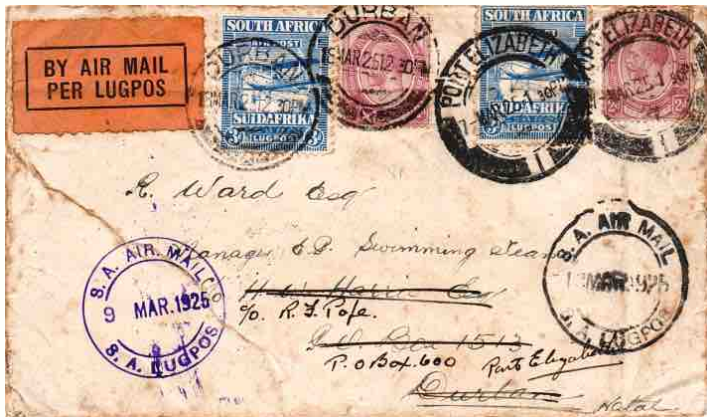 BY AIR MAIL
PER LUGPOS
SOUTH AFRICA
AIR POST
SUIDAFRIKA
LUGPOST
DURBAN
DURBAN
SOUTH AFRICA
SUIDAFRIKA
LUGPOST
PORT ELIZABETH
PORT ELIZABETH
Ward Esq
Manager E.P. Swimming Team
c/o. R. J. Pope.
P.O Box 1513
P.O Box.600 Port Elizabeth
Durban
Natal
S. A. AIR MAIL
9 MAR.1925
S. A. LUGPOS
S. A. AIR MAIL
MAR 1925
S. A. LUGPOS